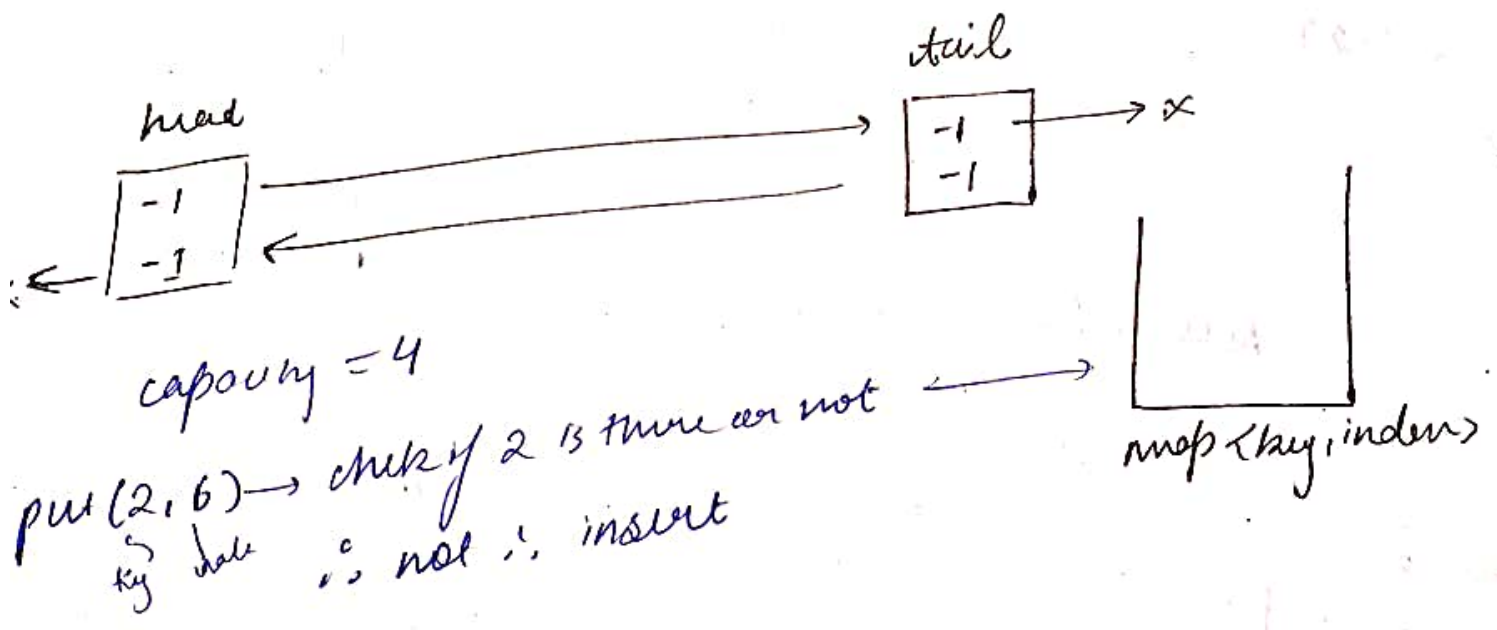 head
tail
-1
-1
-1 → x
-1
capacity = 4
put(2, 6) → check if 2 is there or not
key value
∴ not ∴ insert
map<key, index>